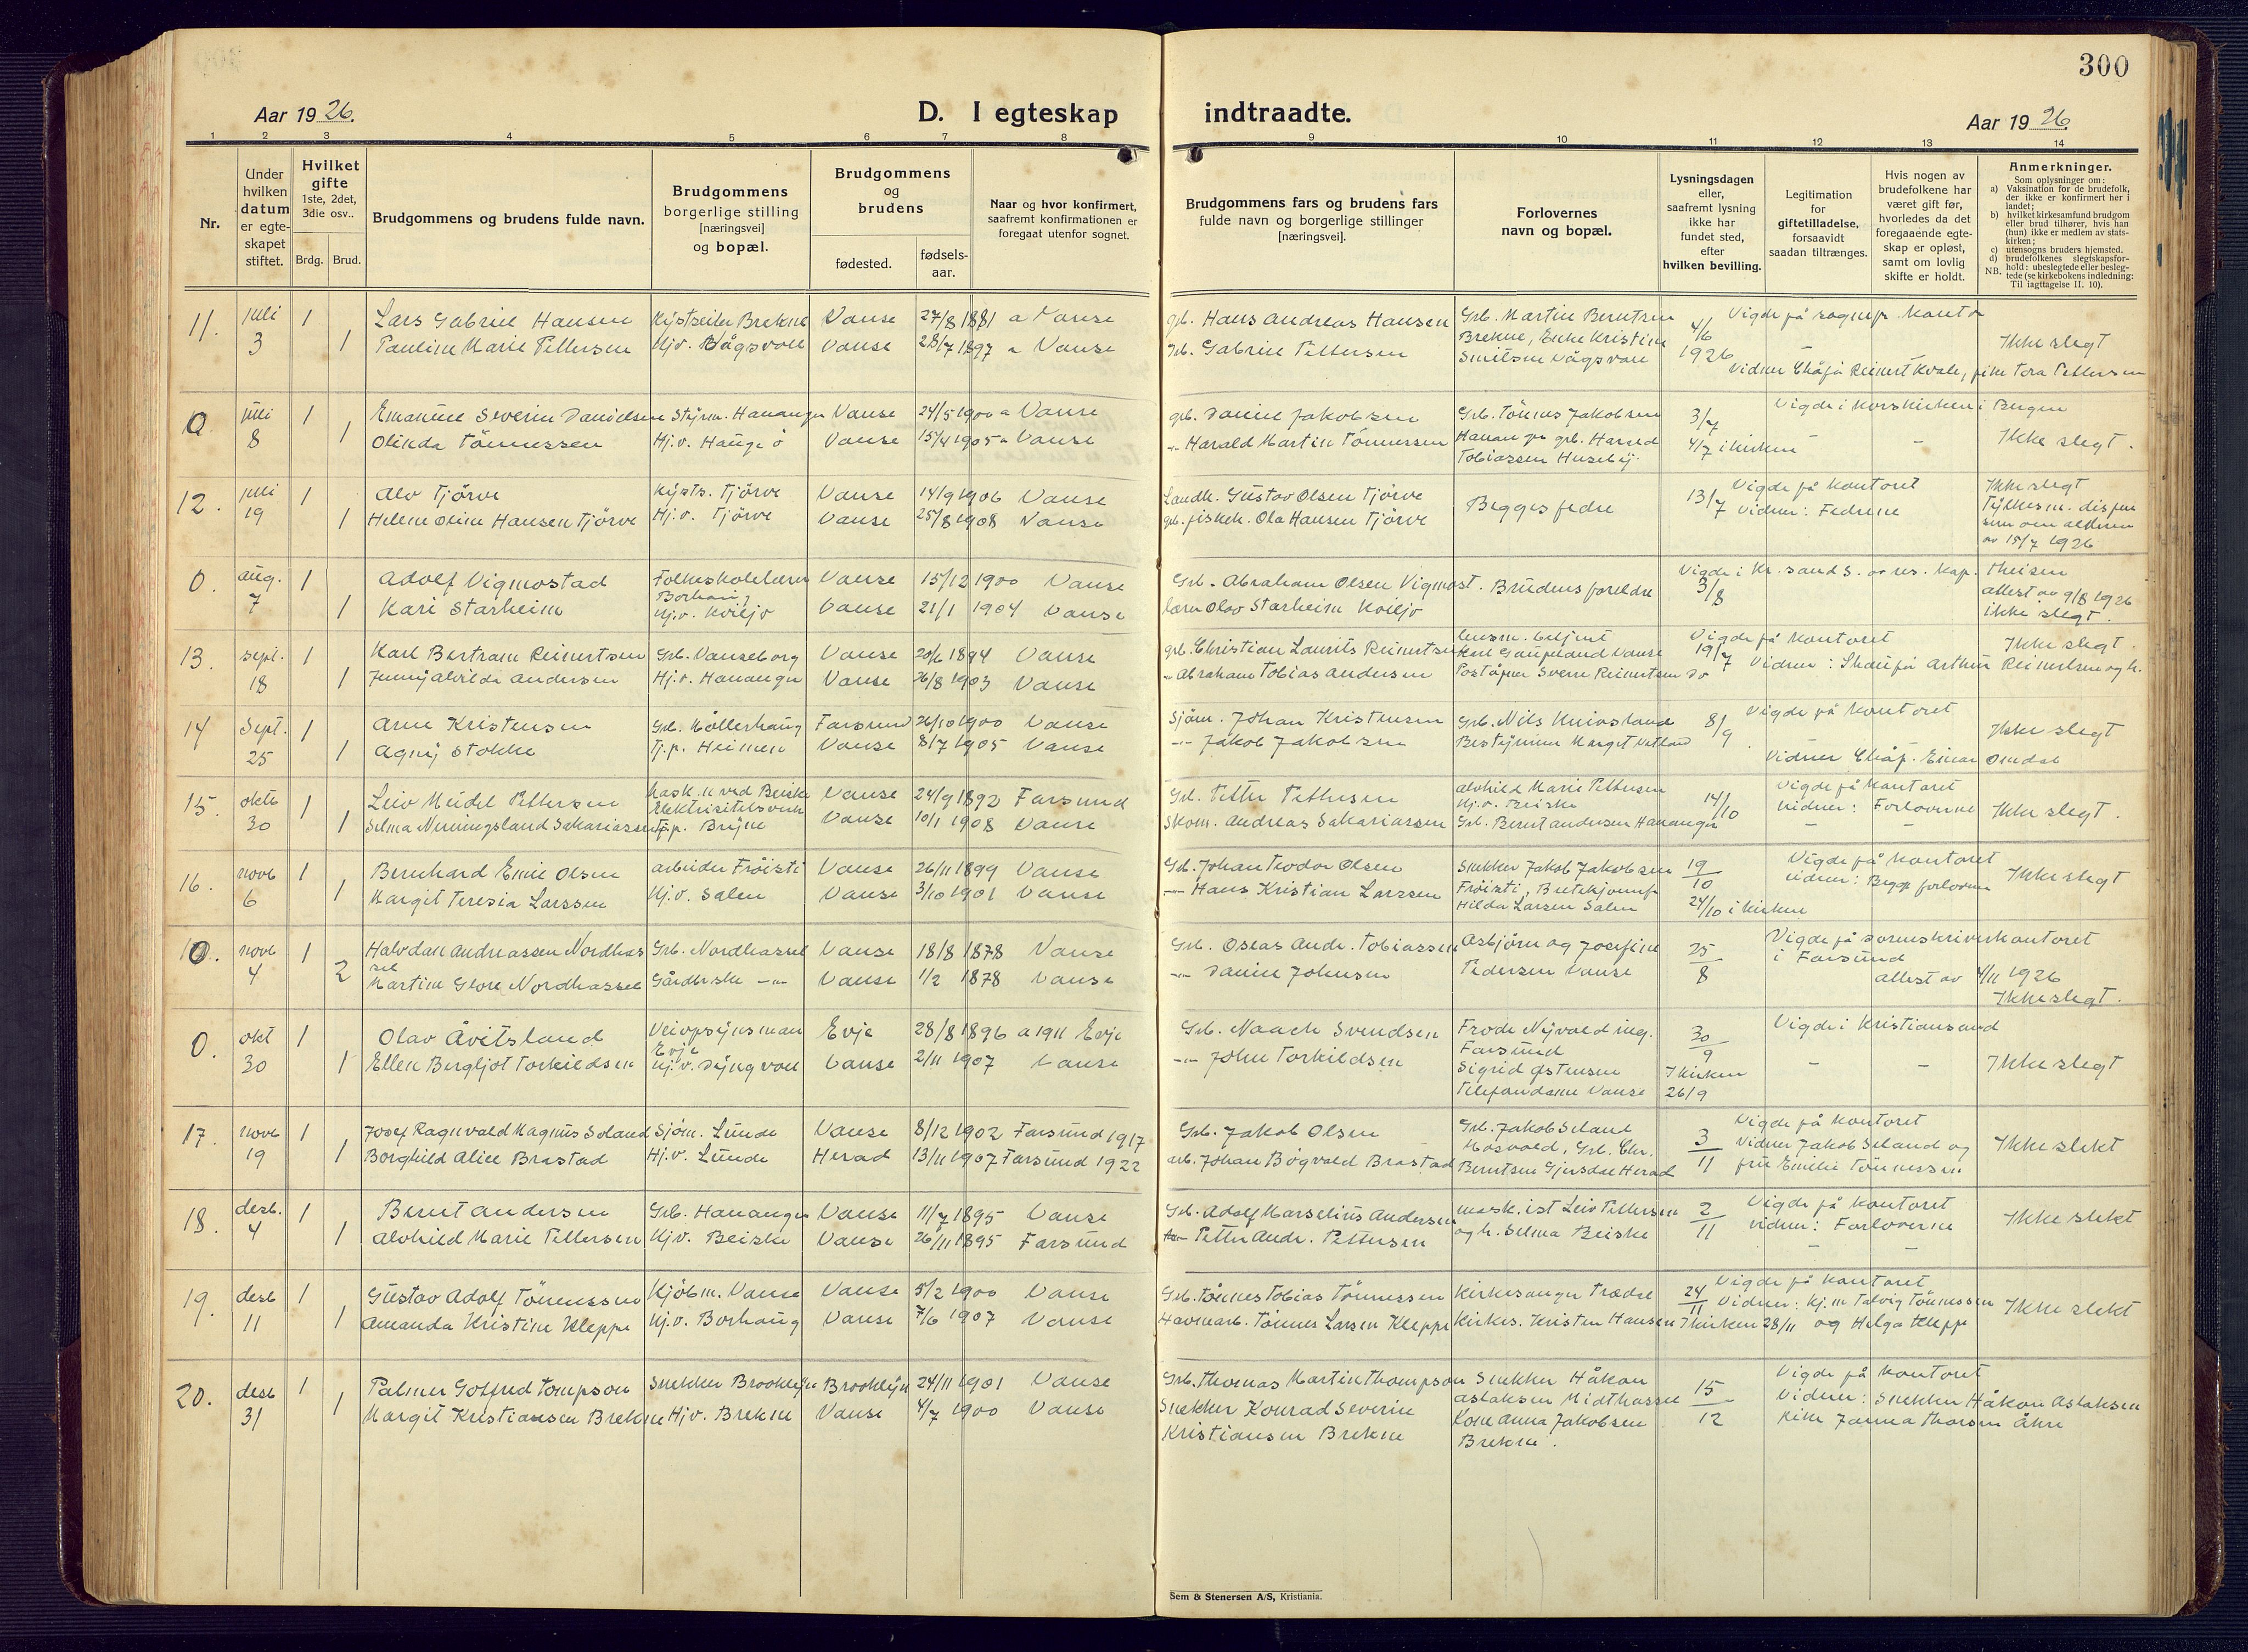 300
Aar 1926.
D. I egteskap
indtraadte.
Aar 1926.
1 2 3 4 5 6 7 8 9 10 11 12 13 14
Nr.
Under hvilken datum er egte-skapet stiftet.
Hvilket gifte 1ste, 2det, 3die osv..
Brdg. Brud.
Brudgommens og brudens fulde navn.
Brudgommens borgerlige stilling [næringsvei] og bopæl.
Brudgommens og brudens
fødested.
fødsels-aar.
Naar og hvor konfirmert, saafremt konfirmationen er foregaat utenfor sognet.
Brudgommens fars og brudens fars fulde navn og borgerlige stillinger [næringsvei].
Forlovernes navn og bopæl.
Lysningsdagen eller, saafremt lysning ikke har fundet sted, efter hvilken bevilling.
Legitimation for giftetilladelse, forsaavidt saadan tiltrænges.
Hvis nogen av brudefolkene har været gift før, hvorledes da det foregaaende egte-skap er opløst, samt om lovlig skifte er holdt.
Anmerkninger.
Som oplysninger om:
a) Vaksination for de brudefolk, der ikke er konfirmert her i landet;
b) hvilket kirkesamfund brudgom eller brud tilhører, hvis han (hun) ikke er medlem av stats-kirken;
c) utensogns bruders hjemsted.
d) brudefolkenes slegtskapsfor-hold: ubeslegtede eller besleg-tede (se kirkebokens indledning:
NB. Til iagttagelse II. 10).
11. juli 1 Lars Gabriel Hansen Brekne Vanse 27/8 1881 a Vanse grb. Hans Andreas Hansen Grb. Martin Berntsen 4/6 Vigde på sognepr. kontor
3 1 Pauline Marie Pettersen Hj.v. Vågsvoll Vanse 28/7 1897 a Vanse Grb. Gabriel Pettersen Brekne, Enke Kristine Ikke slegt
Vågsvoll 1926 Vidner Reinert Kvale, frk. Tora Pettersen
0 juli 1 Emanuel Severin Danielsen Styrm. Hananger Vanse 24/5 1900 a Vanse grb. Daniel Jakobsen Grb. Tönnes Jakobsen 3/7 Vigde i Korskirken i Bergen
8 1 Olinda Tönnessen Hj.v. Vanse 15/4 1905 a Vanse -"- Harald Martin Tönnessen Hananger grb. Harald 4/7 i kirken - - Ikke slegt.
Tobiassen Huseby.
12. juli 1 Alv Tjörve Tjörve Vanse 14/9 1906 Vanse Landh. Gustav Olsen Tjörve Begges fedre 13/7 Vigde på kontoret Ikke slegt
19 1 Helene Oline Hansen Tjörve Hj.v. Tjörve Vanse 25/8 1908 Vanse grb. fiskeh. Ola Hansen Tjörve Vidner: Fedrene Fylkesm. dispen
sion om alderen
av 15/7 1926
0. aug. 1 Adolf Vigmostad Folkeskolelærer Vanse 15/12 1900 Vanse Grb. Abraham Olsen Vigmost. Brudens foreldre 3/8 Vigde i Kr.sand S. av res. kap. Theisen
Borhaug
7 1 Kari Starheim Hj.v. Kviljo Vanse 21/1 1904 Vanse lærer Olav Starheim Kviljo attest av 9/8 1926
ikke slegt.
13. sept. 1 Karl Bertram Reinertsen Grb. Vanseborg Vanse 20/6 1894 Vanse grb. Christian Laurits Reinertsen Vanse 19/7 Vigde på kontoret Ikke slegt.
18 1 Jenny Alvilda Andersen Hj.v. Hananger Vanse 26/8 1903 Vanse -"- Abraham Tobias Andersen Poståpner Sverre Reinertsen do Vidner: Arthur Reinertsen og h.
14 sept. 1 Arne Kristensen Grb. Möllerhaug Farsund 26/10 1900 Vanse Sjöm. Johan Kristensen Grb. Nils 8/9 Vigde på kontoret
25 1 Agny Stokke Tj.p. Heimen Vanse 8/7 1905 Vanse -"- Jakob Jakobsen Bestyrerinne Margit Ikke slegt
Vidner Einar Omdal
15. oktb 1 Leiv Meidel Pettersen ved Beiske Vanse 24/9 1892 Farsund Grb. Petter Pettersen Alvhild Marie Pettersen 14/10 Vigde på kontoret
Elektrisitetsverk Hj.v. Beiske
30 1 Selma Nenningsland Sakariassen Tj.p. Bryne Vanse 10/1 1908 Vanse Skom. Andreas Sakariassen Grb. Bernt Andersen Hananger vidner: Forloverne Ikke slegt.
16. novb 1 Bernhard Emil Olsen arbeider Fröisti Vanse 26/11 1899 Vanse Grb. Johan Teodor Olsen Snekker Jakob Jakobsen 19/10 Vigde på kontoret
6 1 Margit Teresia Larssen Hj.v. Salen Vanse 3/10 1901 Vanse -"- Hans Kristian Larssen Fröisti, vidner: Begge forlovere Ikke slegt
Hilda Larsen Salen 24/10 i kirken
0. novb 1 Halvdan Andreassen Nordhas Grb. Nordhassel Vanse 18/8 1878 Vanse Grb. Oseas Andr. Tobiassen Asbjörn og Josefine 25/8 Vigde på sorenskriverkontoret
sel i Farsund
4 2 Martine Nordhassel Gårdbrske -"- Vanse 1/2 1878 Vanse -"- Daniel Johnsen Pedersen Vanse attest av 4/11 1926
Ikke slegt.
0. okt 1 Olav Åvitsland Veiopsynsman Evje 28/8 1896 a 1911 Evje Grb. Naach Svendsen Frode Nyvold ing. 30/9 Vigde i Kristiansand
Evje Farsund
30 1 Ellen Bergljot Torkildsen Hj.v. Dyngvoll Vanse 2/11 1907 Vanse -"- John Torkildsen Sigrid Østensen I kirken - - Ikke slegt
Telefondame Vanse 26/9
17. novb 1 Josef Ragnvald Magnus Seland Sjöm. Lunde Vanse 8/12 1902 Farsund 1917 Grb. Jakob Olsen Grb. Jakob Seland 3/11 Vigde på kontoret
19 1 Borghild Alice Brastad Hj.v. Lunde Herad 13/11 1907 Farsund 1922 arb. Johan Bögvald Brastad Mosvold, Grb. Chr. Vidner Jakob Seland og Ikke slekt
Berntsen Gjersdal Herad fru Emilie Tönnessen
18. desb. 1 Bernt Andersen Grb. Hananger Vanse 11/7 1895 Vanse Grb. Adolf Marselius Andersen mask.ist Leiv Pettersen 2/11 Vigde på kontoret
4 1 Alvhild Marie Pettersen Hj.v. Beiske Vanse 26/11 1895 Farsund Petter Andr. Pettersen og h. Selma Beiske vidner: Forloverne Ikke slekt
19. desb 1 Gustav Adolf Tönnessen Kjöbm. Vanse Vanse 5/2 1900 Vanse Grb. Tönnes Tobias Tönnessen Kirkesanger Trædal 24/11 Vigde på kontoret
11 1 Amanda Kristine Kleppe Hj.v. Borhaug Vanse 7/6 1907 Vanse Havnearb. Tönnes Larsen Kleppe Kirkes. Kristen Hansen I kirken 28/11 Vidner: Kj.m Talvig Tönnessen og Helga Kleppe Ikke slekt
20. desb 1 Palmer Gotfred Tompson Snekker Brooklyn Brooklyn 24/11 1901 Vanse Grb. Thomas Martin Thompson Snekker Håkon 15/12 Vigde på kontoret
31 1 Margit Kristiansen Brekne Hj.v. Brekne Vanse 4/7 1900 Vanse Snekker Konrad Severin Aslaksen Midthassel Vidner: Snekker Håkon Aslaksen
Kristiansen Brekne Kone Anna Jakobsen frk. Janna Thorsen Åhre
Brekne.
Sem & Stenersen A/S, Kristiania.